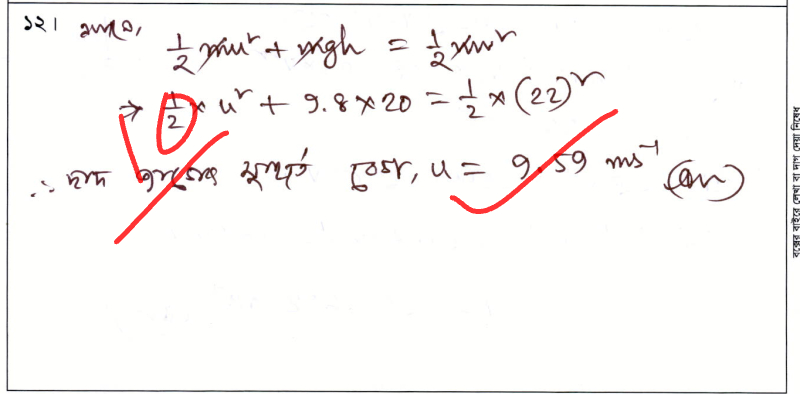 ১২। আমরা জানি,
½mu² + mgh = ½mv²
⇒ ½ × u² + 9.8 × 20 = ½ × (22)²
∴ ছাদ মুহূর্ত বেগ, u = 9.59 ms⁻¹ (Ans)
বক্সের বাইরে লেখা বা দাগ দেয়া নিষেধ